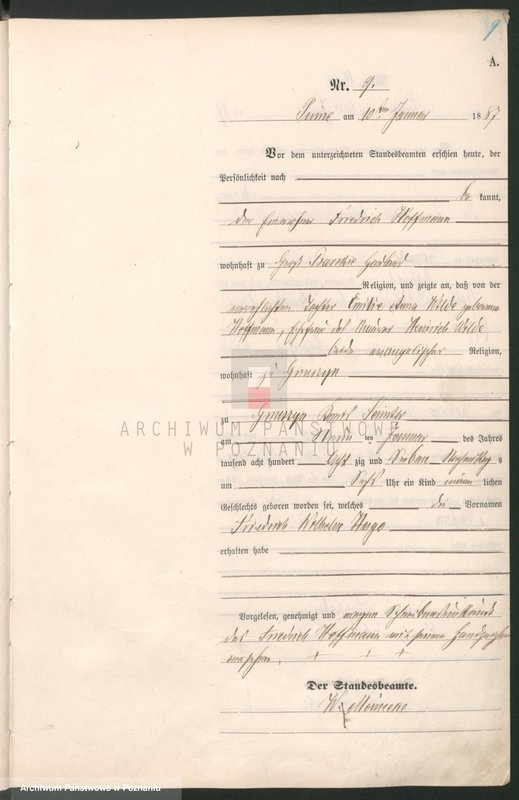 9
A.
Nr. 9.
Pinne am 10ten Januar 1887
Vor dem unterzeichneten Standesbeamten erschien heute, der
Persönlichkeit nach
be kannt,
der Einwohner Friedrich Hoffmann
wohnhaft zu Groß Hauland
Religion, und zeigte an, daß von der
verehelichten Tochter Emilie Anna Wilde geborene
Hoffmann, Ehefrau des Maurer Heinrich Wilde
beide evangelischer Religion,
wohnhaft zu
zu
am ten Januar des Jahres
tausend acht hundert acht zig und Sieben Nachmittag s
um Uhr ein Kind männ lichen
Geschlechts geboren worden sei, welches die Vornamen
Friedrich Wilhelm Hugo
erhalten habe
Vorgelesen, genehmigt und wegen Schreibensunkunde
des Friedrich Hoffmann mit seinem Handzeichen
versehen. + + +
Der Standesbeamte.
W.
ARCHIWUM PAŃSTWOWE
W POZNANIU
Archiwum Państwowe w Poznaniu